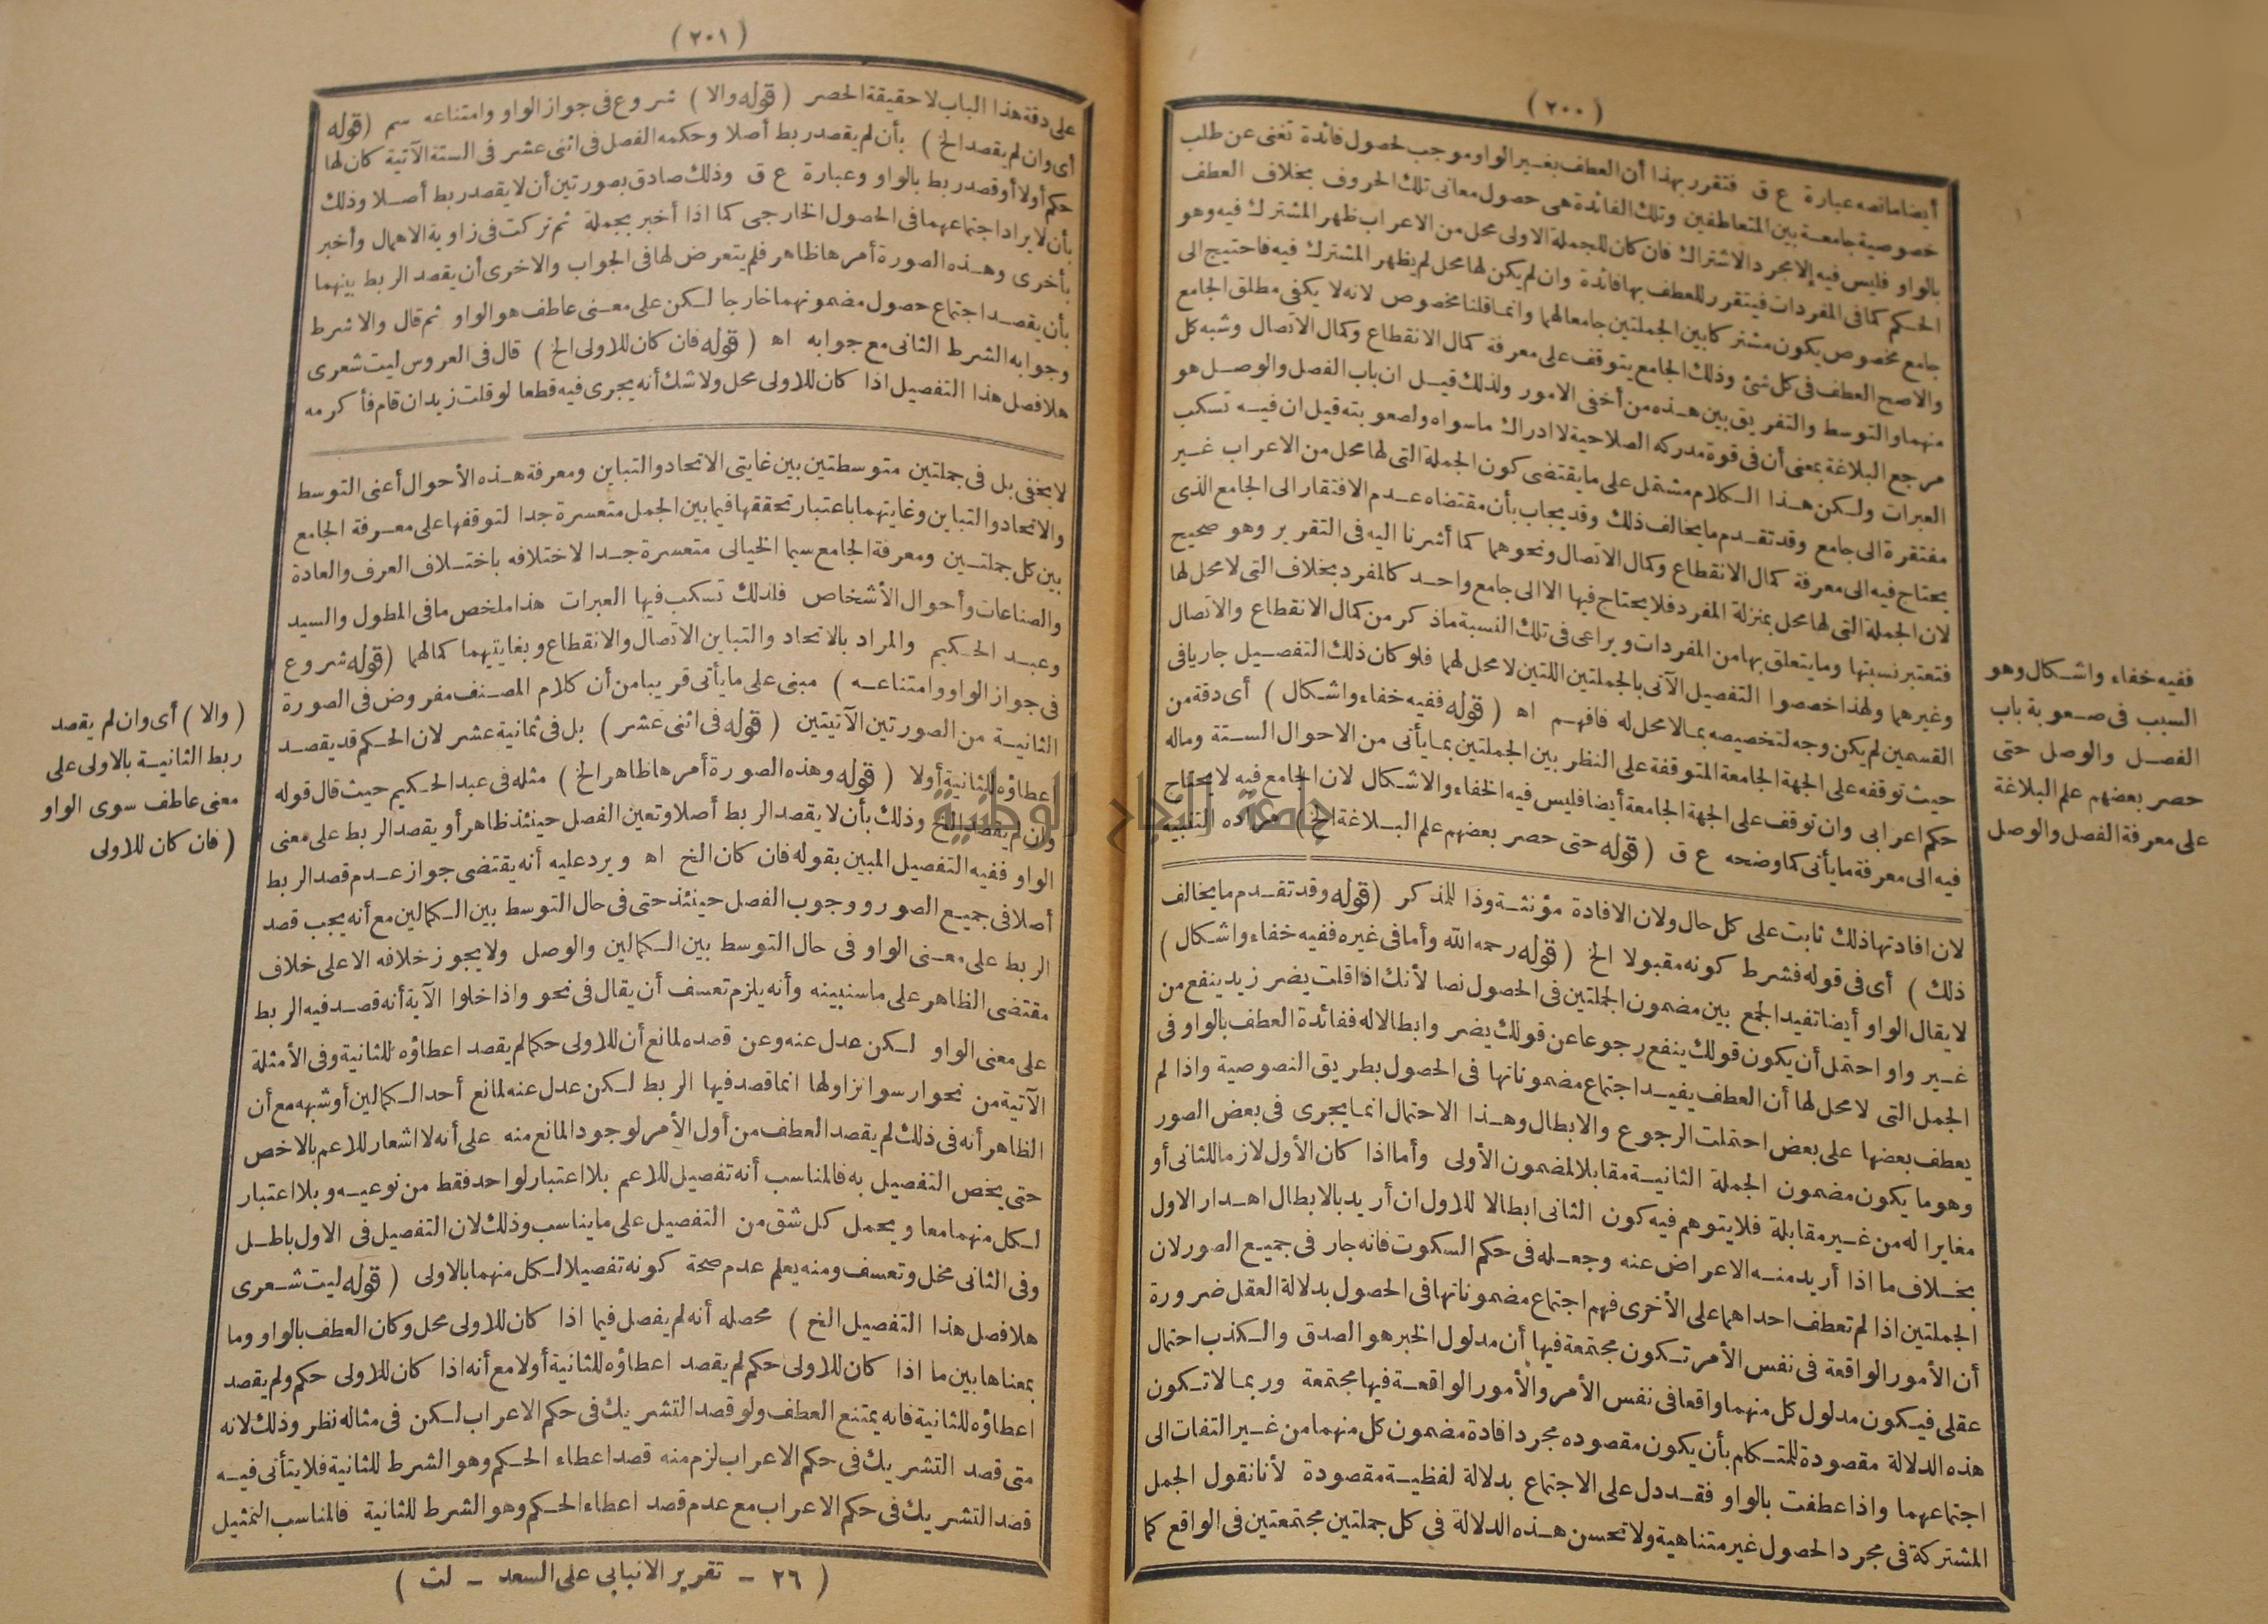 (٢٠٠)
أيضا مانصه عبارة ع ق فتقرر بهذا أن العطف بغير الواو موجب لحصول فائدة تغنى عن طلب
خصوصية جامعة بين المتعاطفين وتلك الفائدة هى حصول معانى تلك الحروف بخلاف العطف
بالواو فليس فيه إلا مجرد الاشتراك فان كان للجملة الاولى محل من الاعراب ظهر المشترك فيه وهو
الحكم كما فى المفردات فيتقرر للعطف بها فائدة وان لم يكن لها محل لم يظهر المشترك فيه فاحتيج الى
جامع مخصوص يكون مشتركا بين الجملتين جامعا لهما وانما قلنا مخصوص لانه لا يكفى مطلق الجامع
والاصح العطف فى كل شئ وذلك الجامع يتوقف على معرفة كمال الانقطاع وكمال الاتصال وشبه كل
منهما والتوسط والتفريق بين هذه من أخفى الامور ولذلك قيل ان باب الفصل والوصل هو
مرجع البلاغة بمعنى أن فى قوة مدركه الصلاحية لادراك ما سواه ولصعوبته قيل ان فيه تسكب
العبرات ولكن هذا الكلام مشتمل على ما يقتضى كون الجملة التى لها محل من الاعراب غير
مفتقرة الى جامع وقد تقدم ما يخالف ذلك وقد يجاب بأن مقتضاه عدم الافتقار الى الجامع الذى
يحتاج فيه الى معرفة كمال الانقطاع وكمال الاتصال ونحوهما كما أشرنا اليه فى التقرير وهو صحيح
لان الجملة التى لها محل بمنزلة المفرد فلا يحتاج فيها الا الى جامع واحد كالمفرد بخلاف التى لا محل لها
فتعتبر نسبتها وما يتعلق بها من المفردات ويراعى فى تلك النسبة ما ذكر من كمال الانقطاع والاتصال
وغيرهما ولهذا خصصوا التفصيل الآتى بالجملتين اللتين لا محل لهما فلو كان ذلك التفصيل جاريا فى
القسمين لم يكن وجه لتخصيصه بما لا محل له فافهم اه (قوله ففيه خفاء واشكال) أى دقة من
حيث توقفه على الجهة الجامعة المتوقفة على النظر بين الجملتين بما يأتى من الاحوال الستة وماله
حكم اعرابى وان توقف على الجهة الجامعة أيضا فليس فيه الخفاء والاشكال لان الجامع فيه لا يحتاج
فيه الى معرفة ما يأتى كما وضحه ع ق (قوله حتى حصر بعضهم علم البلاغة الخ) مراده التنبيه
ففيه خفاء واشكال وهو
السبب فى صعوبة باب
الفصل والوصل حتى
حصر بعضهم علم البلاغة
على معرفة الفصل والوصل
لان افادتها ذلك ثابت على كل حال ولان الافادة مؤنثة وذا للمذكر (قوله وقد تقدم ما يخالف
ذلك) أى فى قوله فشرط كونه مقبولا الخ (قوله رحمه الله وأما فى غيره ففيه خفاء واشكال)
لا يقال الواو أيضا تفيد الجمع بين مضمون الجملتين فى الحصول نصا لأنك اذا قلت يضر زيد ينفع من
غير واو احتمل أن يكون قولك ينفع رجوعا عن قولك يضر وابطالا له ففائدة العطف بالواو فى
الجمل التى لا محل لها أن العطف يفيد اجتماع مضموناتها فى الحصول بطريق النصوصية واذا لم
يعطف بعضها على بعض احتملت الرجوع والابطال وهذا الاحتمال انما يجرى فى بعض الصور
وهو ما يكون مضمون الجملة الثانية مقابلا لمضمون الأولى وأما اذا كان الأول لازما للثانى أو
مغايرا له من غير مقابلة فلا يتوهم فيه كون الثانى ابطالا للاول ان أريد بالابطال اهدار الاول
بخلاف ما اذا أريد منه الاعراض عنه وجعله فى حكم السكوت فانه جار فى جميع الصور لان
الجملتين اذا لم تعطف احداهما على الأخرى فهم اجتماع مضموناتها فى الحصول بدلالة العقل ضرورة
أن الأمور الواقعة فى نفس الأمر تكون مجتمعة فيها أن مدلول الخبر هو الصدق والكذب احتمال
عقلى فيكون مدلول كل منهما واقعا فى نفس الأمر والأمور الواقعة فيها مجتمعة وربما لا تكون
هذه الدلالة مقصودة للمتكلم بأن يكون مقصوده مجرد افادة مضمون كل منهما من غير التفات الى
اجتماعهما واذا عطفت بالواو فقد دل على الاجتماع بدلالة لفظية مقصودة لأنا نقول الجمل
المشتركة فى مجرد الحصول غير متناهية ولا تحسن هذه الدلالة فى كل جملتين مجتمعتين فى الواقع كما
(٢٠١)
على دقة هذا الباب لا حقيقة الحصر (قوله والا) شروع فى جواز الواو وامتناعه سم (قوله
أى وان لم يقصد الخ) بأن لم يقصد ربط أصلا وحكمه الفصل فى اثنى عشر فى الستة الآتية كان لها
حكم أولا أو قصد ربط بالواو وعبارة ع ق وذلك صادق بصورتين أن لا يقصد ربط أصلا وذلك
بأن لا يراد اجتماعهما فى الحصول الخارجى كما اذا أخبر بجملة ثم تركت فى زاوية الاهمال وأخبر
بأخرى وهذه الصورة أمرها ظاهر فلم يتعرض لها فى الجواب والاخرى أن يقصد الربط بينهما
بأن يقصد اجتماع حصول مضمونهما خارجا لكن على معنى عاطف هو الواو ثم قال والا شرط
وجوابه الشرط الثانى مع جوابه اه (قوله فان كان للاولى الخ) قال فى العروس ليت شعرى
هلا فصل هذا التفصيل اذا كان للاولى محل ولا شك أنه يجرى فيه قطعا لو قلت زيد ان قام فأكرمه
لا يخفى بل فى جملتين متوسطتين بين غايتى الاتحاد والتباين ومعرفة هذه الأحوال أعنى التوسط
والاتحاد والتباين وغايتهما باعتبار تحققها فيما بين الجمل متعسرة جدا لتوقفها على معرفة الجامع
بين كل جملتين ومعرفة الجامع سيما الخيالى متعسرة جدا لاختلافه باختلاف العرف والعادة
والصناعات وأحوال الأشخاص فلذلك تسكب فيها العبرات هذا ملخص ما فى المطول والسيد
وعبد الحكيم والمراد بالاتحاد والتباين الاتصال والانقطاع وبغايتيهما كمالهما (قوله شروع
فى جواز الواو وامتناعه) مبنى على ما يأتى قريبا من أن كلام المصنف مفروض فى الصورة
الثانية من الصورتين الآتيتين (قوله فى اثنى عشر) بل فى ثمانية عشر لان الحكم قد يقصد
اعطاؤه للثانية أولا (قوله وهذه الصورة أمرها ظاهر الخ) مثله فى عبد الحكيم حيث قال قوله
وان لم يقصد الخ وذلك بأن لا يقصد الربط أصلا وتعين الفصل حينئذ ظاهر أو يقصد الربط على معنى
الواو ففيه التفصيل المبين بقوله فان كان الخ اه ويرد عليه أنه يقتضى جواز عدم قصد الربط
أصلا فى جميع الصور ووجوب الفصل حينئذ حتى فى حال التوسط بين الكمالين مع أنه يجب قصد
الربط على معنى الواو فى حال التوسط بين الكمالين والوصل ولا يجوز خلافه الا على خلاف
مقتضى الظاهر على ما سنبينه وأنه يلزم تعسف أن يقال فى نحو واذا خلوا الآية أنه قصد فيه الربط
على معنى الواو لكن عدل عنه وعن قصده لمانع أن للاولى حكما لم يقصد اعطاؤه للثانية وفى الأمثلة
الآتية من نحو ارسوا نزاولها انما قصد فيها الربط لكن عدل عنه لمانع أحد الكمالين أو شبهه مع أن
الظاهر أنه فى ذلك لم يقصد العطف من أول الأمر لوجود المانع منه على أنه لا اشعار للاعم بالاخص
حتى يخص التفصيل به فالمناسب أنه تفصيل للاعم بلا اعتبار لواحد فقط من نوعيه وبلا اعتبار
لكل منهما معا ويحمل كل شق من التفصيل على ما يناسب وذلك لان التفصيل فى الاول باطل
وفى الثانى مخل وتعسف ومنه يعلم عدم صحة كونه تفصيلا لكل منهما بالاولى (قوله ليت شعرى
هلا فصل هذا التفصيل الخ) محصله أنه لم يفصل فيما اذا كان للاولى محل وكان العطف بالواو وما
بمعناها بين ما اذا كان للاولى حكم لم يقصد اعطاؤه للثانية أولا مع أنه اذا كان للاولى حكم ولم يقصد
اعطاؤه للثانية فانه يمتنع العطف ولو قصد التشريك فى حكم الاعراب لكن فى مثاله نظر وذلك لانه
متى قصد التشريك فى حكم الاعراب لزم منه قصد اعطاء الحكم وهو الشرط للثانية فلا يتأتى فيه
قصد التشريك فى حكم الاعراب مع عدم قصد اعطاء الحكم وهو الشرط للثانية فالمناسب التمثيل
(والا) أى وان لم يقصد
ربط الثانية بالاولى على
معنى عاطف سوى الواو
(فان كان للاولى
(٢٦ - تقرير الانبابى على السعد - لث)
جامعة النجاح الوطنية